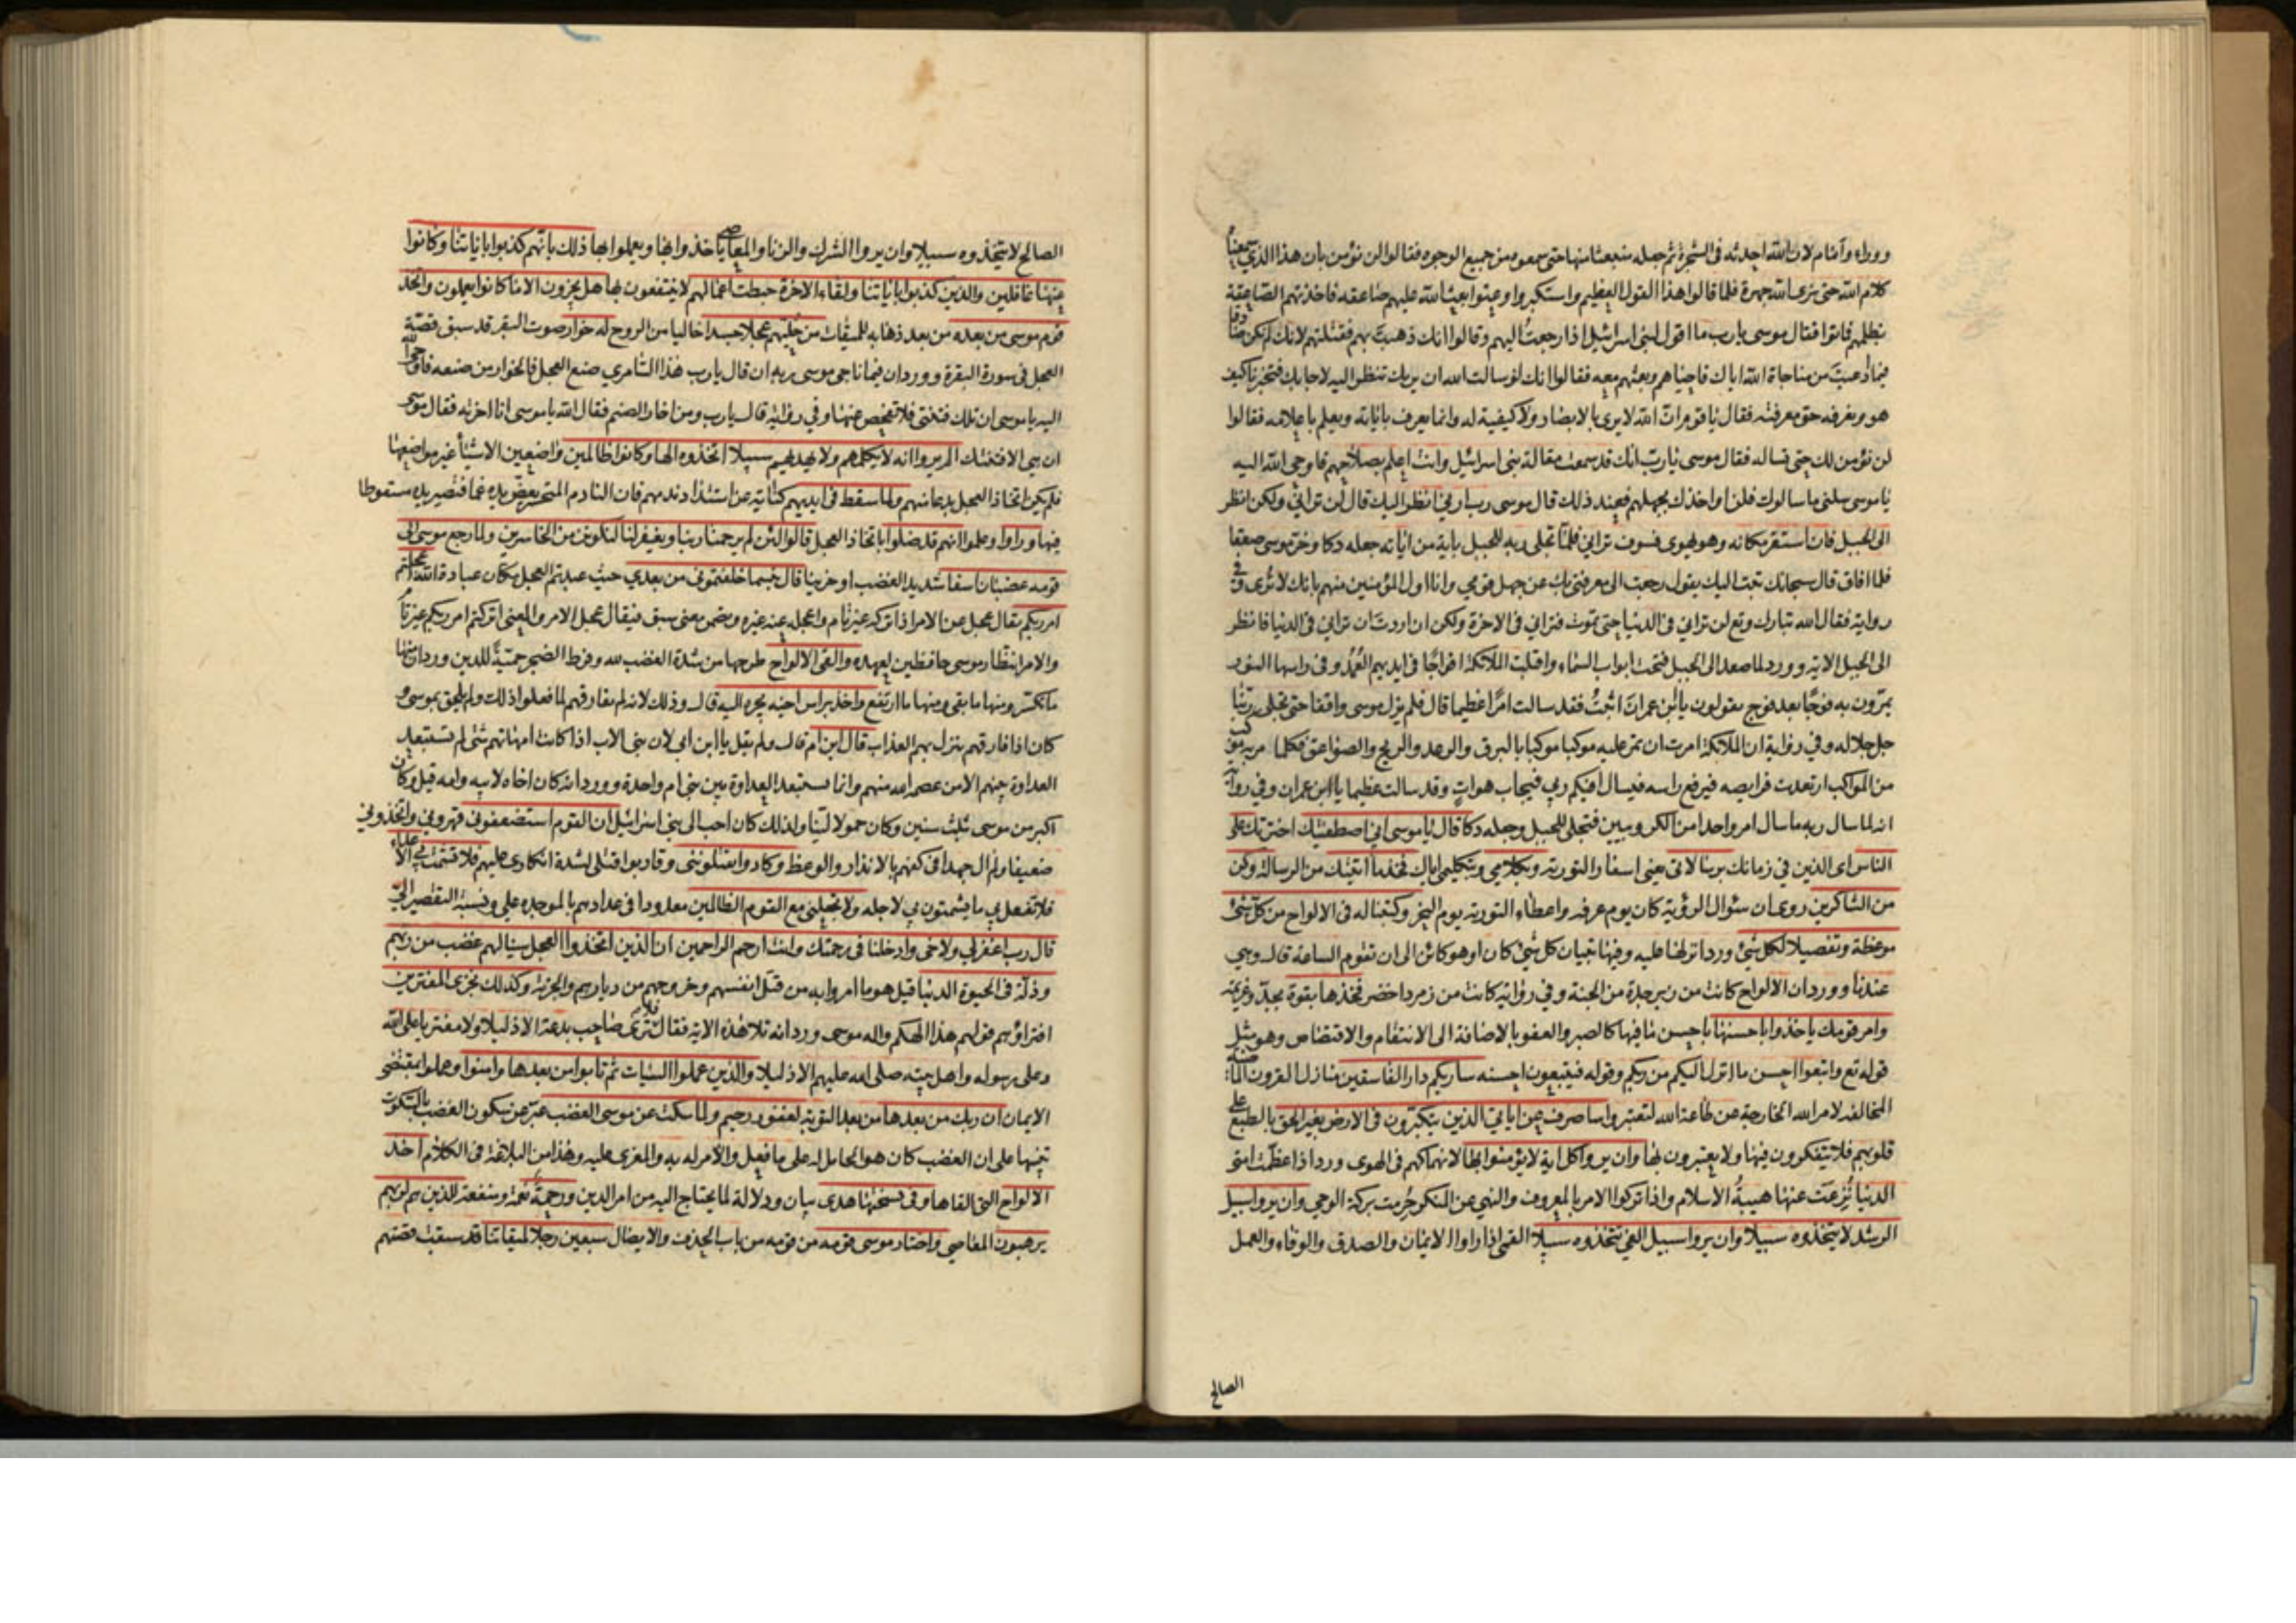 ووراء وأمام لان الله احدثه فى الشجرة ثم جعله منبعثا منها حتى سمعوه من جميع الوجوه فقالوا لن نؤمن بان هذا الذي سمعناه
كلام الله حتى نرى الله جهرة فلما قالوا هذا القول العظيم واستكبروا وعتوا بعث الله عليهم صاعقة فاخذتهم الصاعقة
بظلمهم فماتوا فقال موسى يا رب ما اقول لبنى اسرائيل اذا رجعت اليهم وقالوا انك ذهبت بهم فقتلتهم لانك لم تكن صادقا
فيما ادعيت من مناجاة الله اياك فاحياهم وبعثهم معه فقالوا انك لو سالت الله ان يريك تنظر اليه لاجابك فتخبرنا كيف
هو ونعرفه حق معرفته فقال يا قوم ان الله لا يرى بالابصار ولا كيفية له وانما يعرف باياته ويعلم باعلامه فقالوا
لن نؤمن لك حتى تساله فقال موسى يا رب انك قد سمعت مقالة بنى اسرائيل وانت اعلم بصلاحهم فاوحى الله اليه
يا موسى سلنى ما سالوك فلن اواخذك بجهلهم فعند ذلك قال موسى رب ارنى انظر اليك قال لن ترانى ولكن انظر
الى الجبل فان استقر مكانه وهو يهوى فسوف ترانى فلما تجلى ربه للجبل باية من اياته جعله دكا وخر موسى صعقا
فلما افاق قال سبحانك تبت اليك يقول رجعت الى معرفتى بك عن جهل قومى وانا اول المؤمنين منهم بانك لا ترى وفى
رواية فقال الله تبارك وتع لن ترانى فى الدنيا حتى تموت فترانى فى الاخرة ولكن ان اردت ان ترانى فى الدنيا فانظر
الى الجبل الاية وورد لما صعد الى الجبل فتحت ابواب السماء واقبلت الملائكة افواجا فى ايديهم العمد وفى راسها النور
يمرون به فوجا بعد فوج يقولون يا ابن عمران اثبت فقد سالت امرا عظيما قال فلم يزل موسى واقفا حتى تجلى ربنا
جل جلاله وفى رواية ان الملائكة امرت ان تمر عليه موكبا موكبا بالبرق والرعد والريح والصواعق فكلما مر به موكب
من المواكب ارتعدت فرايصه فيرفع راسه فيسال افيكم ربى فيجاب هو ات وقد سالت عظيما يا ابن عمران وفى رواية
انه لما سال ربه ما سال امر واحدا من الكروبيين فتجلى للجبل وجعله دكا قال يا موسى انى اصطفيتك اخترتك على
الناس اى الذين فى زمانك برسالاتى يعنى اسفار التورية وبكلامى وبتكليمى اياك فخذ ما اتيتك من الرسالة وكن
من الشاكرين روى ان سئوال الرؤية كان يوم عرفه واعطاء التورية يوم النحر وكتبنا له فى الالواح من كل شئ
موعظة وتفصيلا لكل شئ ورد انزلها عليه وفيها تبيان كل شئ كان او هو كائن الى ان تقوم الساعة قال وهى
عندنا وورد ان الالواح كانت من زبرجدة من الجنة وفى رواية كانت من زمرد اخضر فخذها بقوة بجد وعزيمة
وامر قومك ياخذوا باحسنها باحسن ما فيها كالصبر والعفو بالاضافة الى الانتقام والاقتصاص وهو مثل
قوله تع واتبعوا احسن ما انزل اليكم من ربكم وقوله فيتبعون احسنه ساريكم دار الفاسقين منازل القرون الماضية
المخالفة لامر الله الخارجة عن طاعة الله لتعتبروا ساصرف عن اياتى الذين يتكبرون فى الارض بغير الحق بالطبع على
قلوبهم فلا يتفكرون فيها ولا يعتبرون بها وان يروا كل اية لا يؤمنوا بها لانهماكهم فى الهوى ورد اذا عظمت امتى
الدنيا نزعت عنها هيبة الاسلام واذا تركوا الامر بالمعروف والنهى عن المنكر حرمت بركة الوحى وان يروا سبيل
الرشد لا يتخذوه سبيلا وان يروا سبيل الغى يتخذوه سبيلا القمى اذا راوا الايمان والصدق والوفاء والعمل
الصالح
الصالح لا يتخذوه سبيلا وان يروا الشرك والزنا والمعاصى ياخذوا بها ويعملوا بها ذلك بانهم كذبوا باياتنا وكانوا
عنها غافلين والذين كذبوا باياتنا ولقاء الاخرة حبطت اعمالهم لا ينتفعون بها هل يجزون الا ما كانوا يعملون واتخذ
قوم موسى من بعده من بعد ذهابه للميقات من حليهم عجلا جسدا خاليا من الروح له خوار صوت البقر قد سبق قصة
العجل فى سورة البقرة وورد ان فيما ناجى موسى ربه ان قال يا رب هذا السامرى صنع العجل فالخوار من صنعه فاوحى الله
اليه يا موسى ان تلك فتنتى فلا تفحص عنها وفى رواية قال يا رب ومن اخار الصنم فقال الله يا موسى انا اخرته فقال موسى
ان هى الا فتنتك الم يروا انه لا يكلمهم ولا يهديهم سبيلا اتخذوه الها وكانوا ظالمين واضعين الاشياء غير مواضعها
فلم يكن اتخاذ العجل بدعا منهم ولما سقط فى ايديهم كناية عن اشتداد ندمهم فان النادم المتحسر يعض يده غما فتصير يده مسقوطا
فيها وراوا وعلموا انهم قد ضلوا باتخاذ العجل قالوا لئن لم يرحمنا ربنا ويغفر لنا لنكونن من الخاسرين ولما رجع موسى الى
قومه غضبان اسفا شديد الغضب او حزينا قال بئسما خلفتمونى من بعدى حيث عبدتم العجل مكان عبادة الله اعجلتم
امر ربكم يقال عجل عن الامر اذا تركه غير تام واعجله عنه غيره ويضمن معنى سبق فيقال عجل الامر والمعنى اتركتم امر ربكم غير تام
والامر انتظار موسى حافظين لعهده والقى الالواح طرحها من شدة الغضب لله وفرط الضجر حمية للدين وورد ان منها
ما تكسر ومنها ما بقى ومنها ما ارتفع واخذ براس اخيه يجره اليه قال وذلك لانه لم يفارقهم لما فعلوا ذلك ولم يلحق بموسى و
كان اذا فارقهم ينزل بهم العذاب قال ابن ام قال ولم يقل يا ابن ابى لان بنى الاب اذا كانت امهاتهم شتى لم تستبعد
العداوة بينهم الا من عصمه الله منهم وانما تستبعد العداوة بين بنى ام واحدة وورد انه كان اخاه لابيه وامه قيل وكان
اكبر من موسى بثلث سنين وكان حمولا لينا ولذلك كان احب الى بنى اسرائيل ان القوم استضعفونى قهرونى واتخذونى
ضعيفا ولم ال جهدا فى كفهم بالانذار والوعظ وكادوا يقتلوننى وقاربوا قتلى لشدة انكارى عليهم فلا تشمت بى الاعداء
فلا تفعل بى ما يشمتون بى لاجله ولا تجعلنى مع القوم الظالمين معدودا فى عدادهم بالموجدة على ونسبة التقصير الى
قال رب اغفر لى ولاخى وادخلنا فى رحمتك وانت ارحم الراحمين ان الذين اتخذوا العجل سينالهم غضب من ربهم
وذلة فى الحيوة الدنيا قيل هو ما امروا به من قتل انفسهم وخروجهم من ديارهم والجزية وكذلك نجزى المفترين
افتراؤهم قولهم هذا الهكم واله موسى وورد انه تلا هذه الاية فقال فلا ترى صاحب بدعة الا ذليلا ولا مفتريا على الله
وعلى رسوله واهل بيته صلى الله عليهم الا ذليلا والذين عملوا السيئات ثم تابوا من بعدها وامنوا وعملوا بمقتضى
الايمان ان ربك من بعدها من بعد التوبة لغفور رحيم ولما سكت عن موسى الغضب عبر عن سكون الغضب بالسكوت
تنبيها على ان الغضب كان هو الحامل له على ما فعل والامر له به والمغرى عليه وهذا من البلاغة فى الكلام اخذ
الالواح التى القاها وفى نسختها هدى بيان ودلالة لما يحتاج اليه من امر الدين ورحمة نعمة ومنفعة للذين هم لربهم
يرهبون المعاصى واختار موسى قومه من قومه من باب الحذف والايصال سبعين رجلا لميقاتنا قد سبقت قصتهم